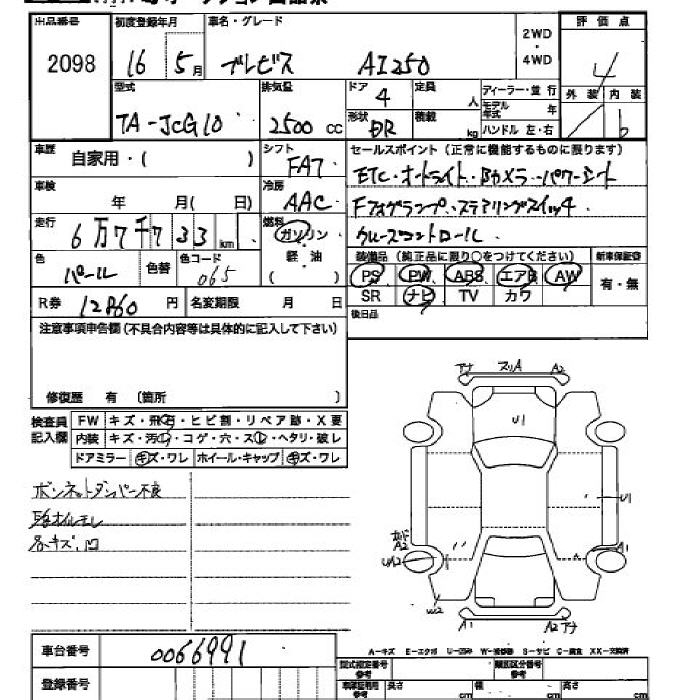 出品番号 初度登録年月 車名・グレード 2WD・4WD 評価点
2098 16年 5月 ブレビス AI250 4
型式 排気量 ドア 定員 ディーラー・並行 外装 内装
TA-JCG10 2500 cc 4 人 モデル年式 年 b
形状 積載 kg ハンドル 左・右
車歴 自家用・( ) シフト FAT セールスポイント(正常に機能するものに限ります)
車検 年 月( 日) 冷房 AAC ETC・オートライト・Bカメラ・パワーシート
走行 6万7千733km 燃料 ガソリン Fフォグランプ・ステアリングスイッチ・
軽油 クルーズコントロール
色 パール 色替 色コード 065 ( ) 装備品(純正品に限り○をつけてください) 新車保証書
PS PW ABS エアB AW 有・無
R券 12860円 名変期限 月 日 SR ナビ TV カワ
注意事項申告欄(不具合内容等は具体的に記入して下さい) 後日品
修復歴 有 〔箇所 〕
検査員記入欄 FW キズ・飛石・ヒビ割・リペア跡・X要
内装 キズ・汚レ・コゲ・穴・スレ・ヘタリ・破レ
ドアミラー キズ・ワレ ホイール・キャップ キズ・ワレ
ボンネットダンパー不良
各キズ、凹
アナ スリA A2
U1
U1
A2 A1
UA2
W2
A1 A2 アナ
A-キズ E-エクボ U-凹み W-補修跡 S-サビ C-腐食 XX-交換済
車台番号 0066991
登録番号
型式指定番号 参考 類別区分番号 参考
長さ cm 幅 cm 高さ cm